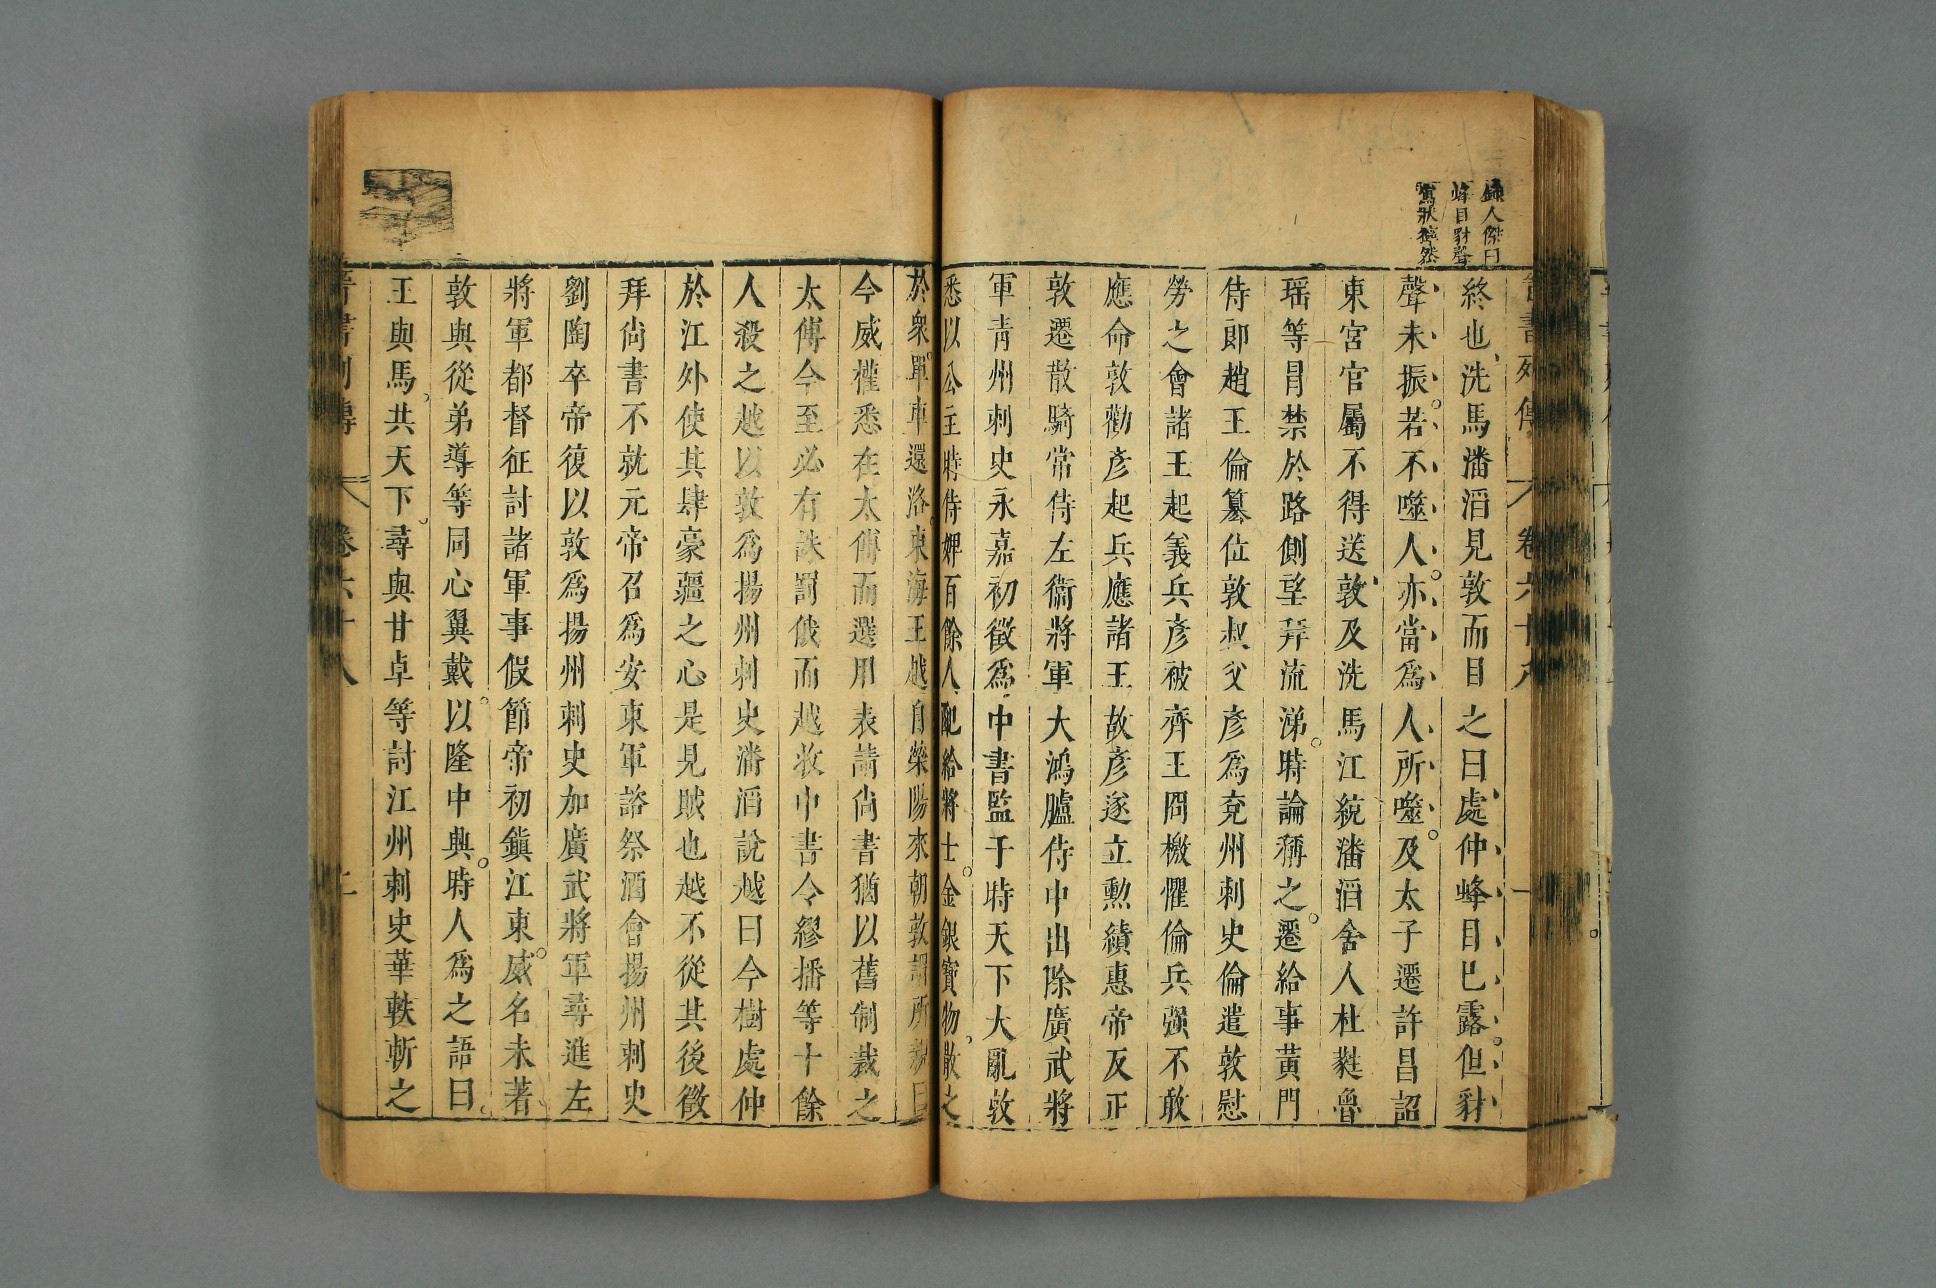 鍾人傑曰
蜂目豺聲
寫狀獰然
晉書列傳 卷六十八 一
終也洗馬潘滔見敦而目之曰處仲蜂目已露但豺
聲未振若不噬人亦當爲人所噬及太子遷許昌詔
東宮官屬不得送敦及洗馬江統潘滔舍人杜蕤魯
瑶等冐禁於路側望拜流涕時論稱之遷給事黃門
侍郎趙王倫篡位敦叔父彦爲兖州刺史倫遣敦慰
勞之會諸王起義兵彦被齊王冏檄懼倫兵强不敢
應命敦勸彦起兵應諸王故彦遂立勲績惠帝反正
敦遷散騎常侍左衞將軍大鴻臚侍中出除廣武將
軍青州刺史永嘉初徵爲中書監于時天下大亂敦
悉以公主時侍婢百餘人配給將士金銀寶物散之
於衆單車還洛東海王越自滎陽來朝敦謂所親曰
今威權悉在太傅而選用表請尚書猶以舊制裁之
太傅今至必有誅罰俄而越收中書令繆播等十餘
人殺之越以敦爲揚州刺史潘滔說越曰今樹處仲
於江外使其肆豪疆之心是見賊也越不從其後徵
拜尚書不就元帝召爲安東軍諮祭酒會揚州刺史
劉陶卒帝復以敦爲揚州刺史加廣武將軍尋進左
將軍都督征討諸軍事假節帝初鎭江東威名未著
敦與從弟導等同心翼戴以隆中興時人爲之語曰
王與馬共天下尋與甘卓等討江州刺史華軼斬之
晉書列傳 卷六十八 二